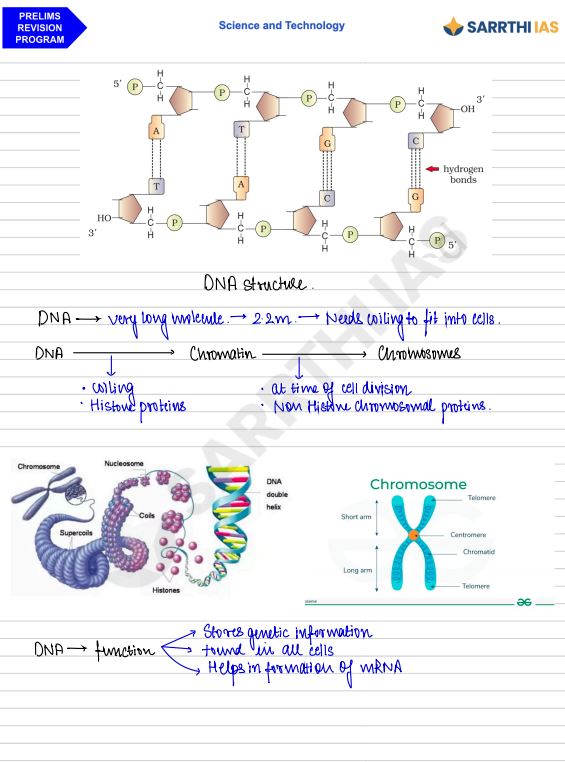 PRELIMS
REVISION
PROGRAM
Science and Technology
SARRTHI IAS
5′ P H C H P H C H P H C H P H C H 3′
OH
A T G C
hydrogen
bonds
T A C G
HO
3′ H C H P H C H P H C H P H C H P 5′
DNA structure.
DNA → very long molecule. → 2.2m. → Needs coiling to fit into cells.
DNA → Chromatin → Chromosomes
• coiling
• Histone proteins
• at time of cell division
• Non Histone chromosomal proteins.
SARRTHI IAS
Chromosome
Nucleosome
DNA
double
helix
Coils
Supercoils
Histones
Chromosome
Telomere
Short arm
Centromere
Chromatid
Long arm
Telomere
DNA → function
→ Stores genetic information
→ found in all cells
→ Helps in formation of mRNA